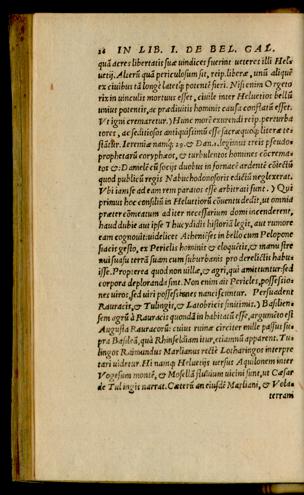 26 IN LIB. I. DE BEL. GAL.
quã acres libertatis suæ vindices fuerint ueteres illi Helu
uetij. Alterũ quã periculosum sit, reip. liberæ, unũ aliquẽ
ex ciuibus tã longè latéq; potentẽ fieri. Nisi enim Orgeto
rix in uinculis mortuus esset, ciuile inter Heluetios bellũ
unius potentis, ac prædiuitis hominis causa conflatũ esset.
Vt igni cremaretur.) Hunc morẽ exurendi reip. perturba
tores, ac seditiosos antiquissimũ esse sacræ quoq; literæ te-
stãtur. Ieremiæ namq; 29. & Dan. 3. legimus treis pseudo-
prophetarũ coryphæos, & turbulentos homines cõcrema-
tos, & Danielẽ cũ socijs duobus in fornacẽ ardentẽ cõiectũ
quod publicũ regis Nabuchodonosoris edictũ neglexerat.
Vbi iam se ad eam rem paratos esse arbitrati sunt.) Qui
primus hoc consiliũ in Heluetiorũ cõuentu dedit, ut omnia
præter cõmeatum ad iter necessarium domi incenderent,
haud dubiè aut ipse Thucydidis historiã legit, aut rumore
eam cognouit: uidelicet Atheniẽses in bello cum Pelopone
siacis gesto, ex Periclis hominis & eloquẽtis, & manu stre
nui suasu terrã suam cum suburbanis pro derelictis habu-
isse. Propterea quod non uillæ, & agri, qui amittuntur: sed
corpora deploranda sint. Non enim ait Pericles, possessio-
nes uiros, sed uiri possessiones nanciscuntur. Persuadent
Rauracis, & Tulingis, & Latobricis finitimis.) Basilien-
sem agrũ à Rauracis quondã in habitatũ esse, argumẽto est
Augusta Rauracorũ: cuius ruinæ circiter mille passus su-
pra Basileã, quà Rhinfeldiam itur, etiamnũ apparent. Tu-
lingos Raimundus Marlianus rectè Lotharingos interpre
tari uidetur. Hi namq; Heluetijs uersus Aquilonem inter
Vogesum montẽ, & Mosellã fluuium uicini sunt, ut Cæsar
de Tulingis narrat. Cæterũ an eiusdẽ Marliani, & Vola-
terrani